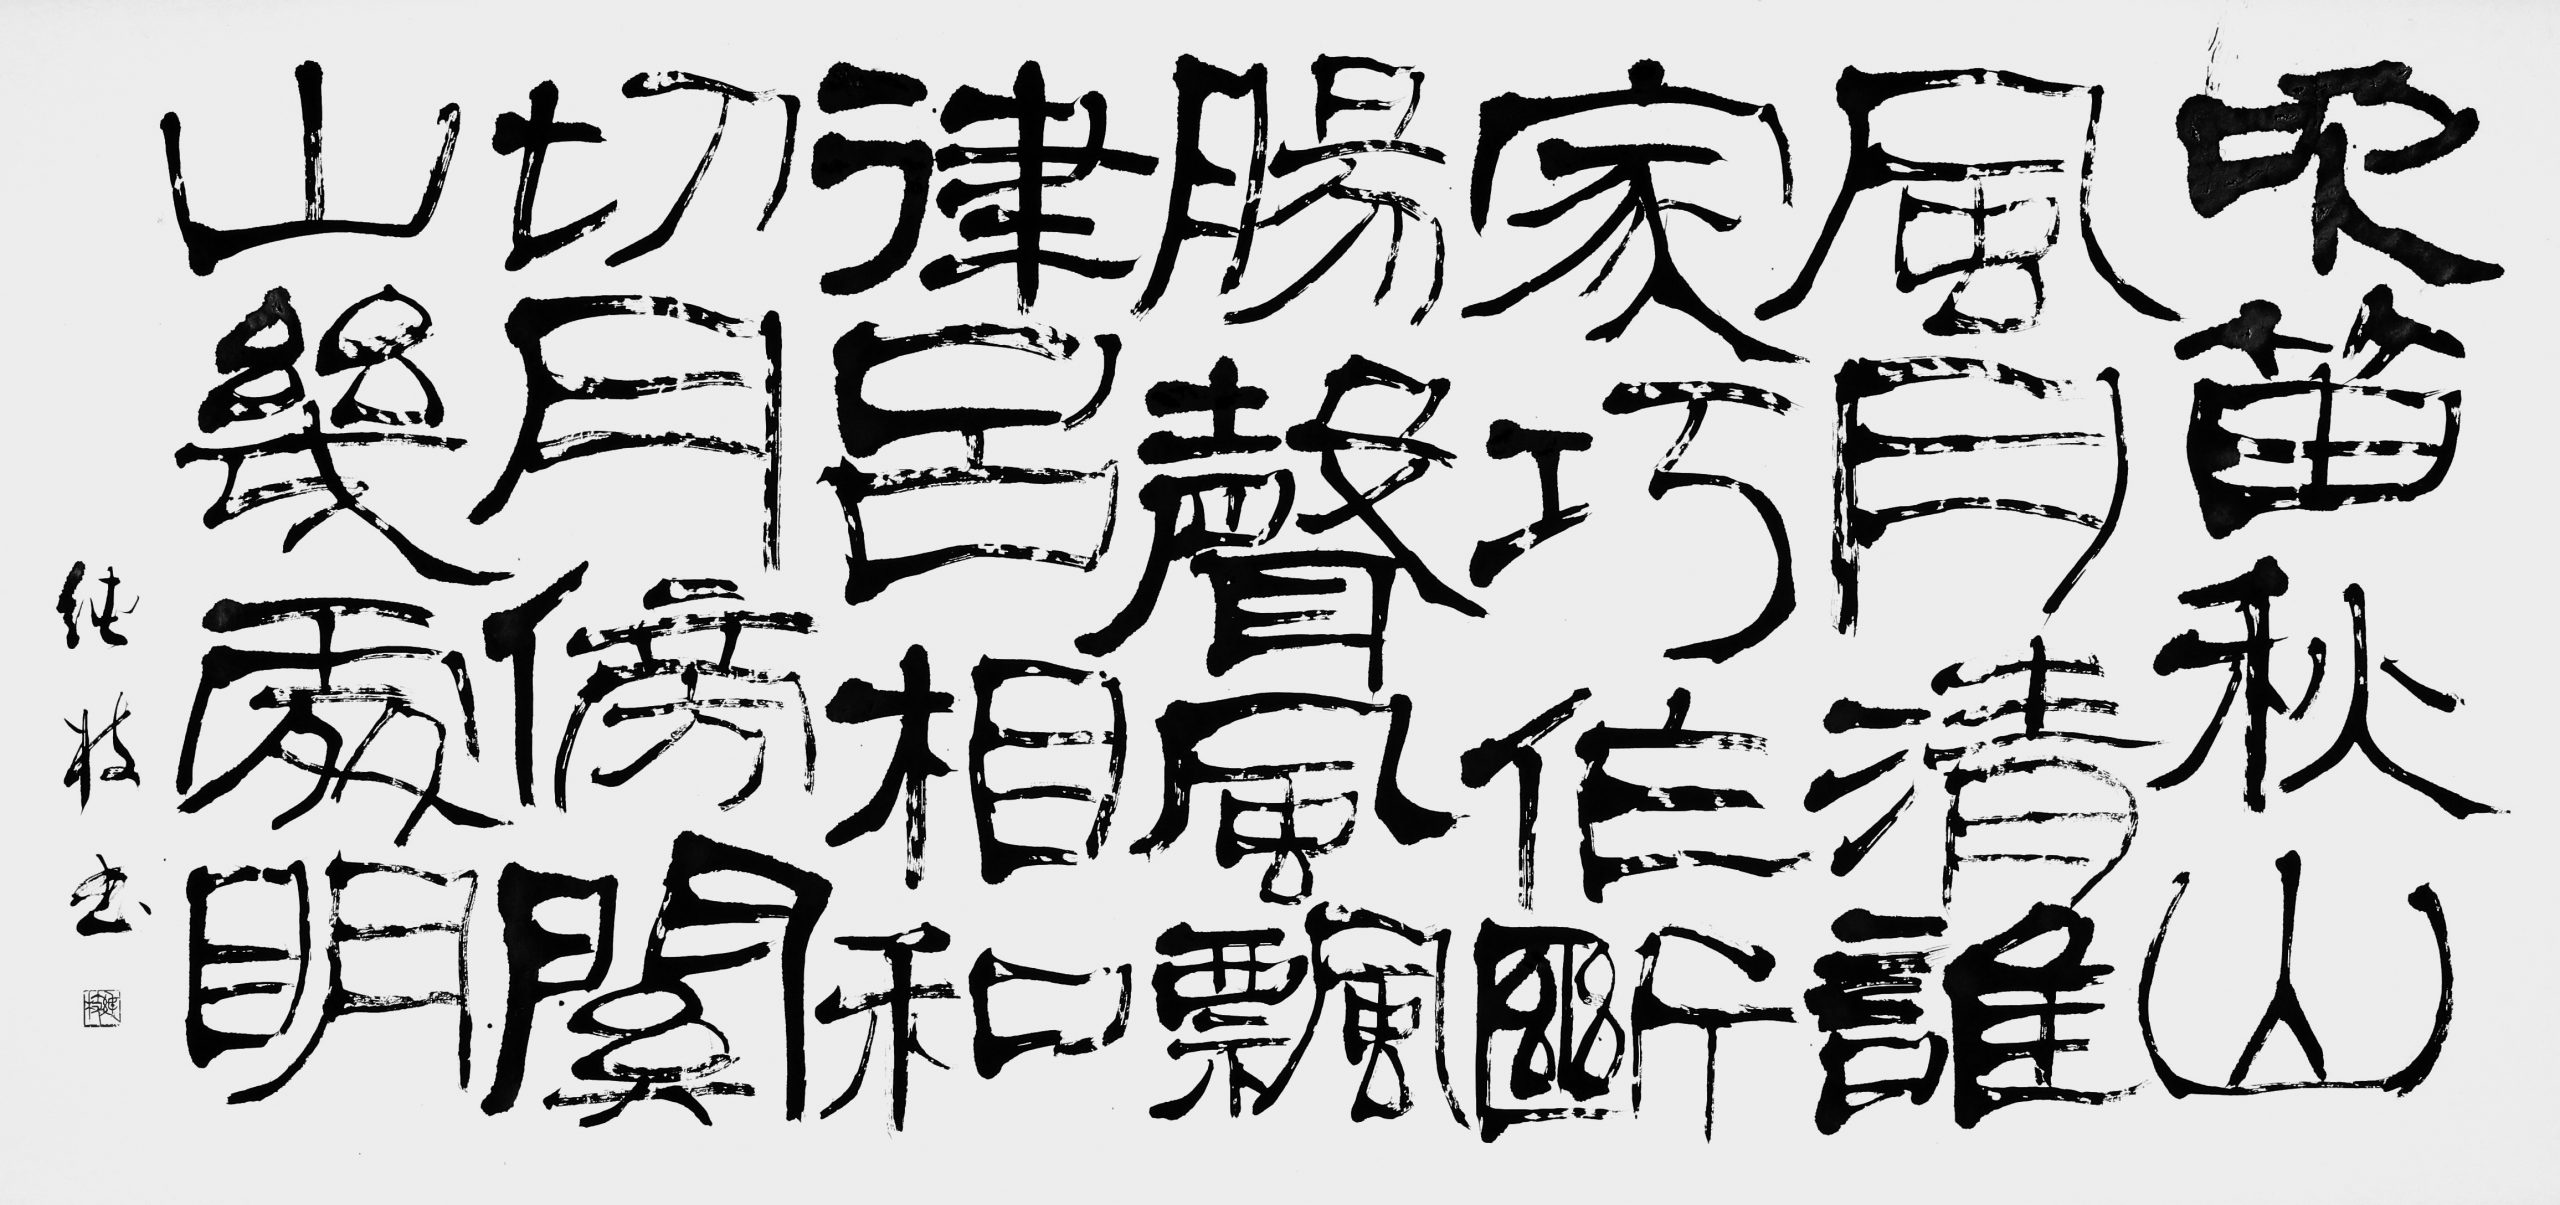 吹笛秋山
風月清誰
家巧作斷
腸聲風飄
律呂相和
切月傍關
山幾處明
純枝書